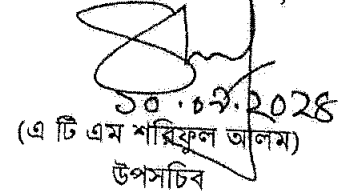 ১০.০৯.২০২৪
(এ টি এম শরিফুল আলম)
উপসচিব